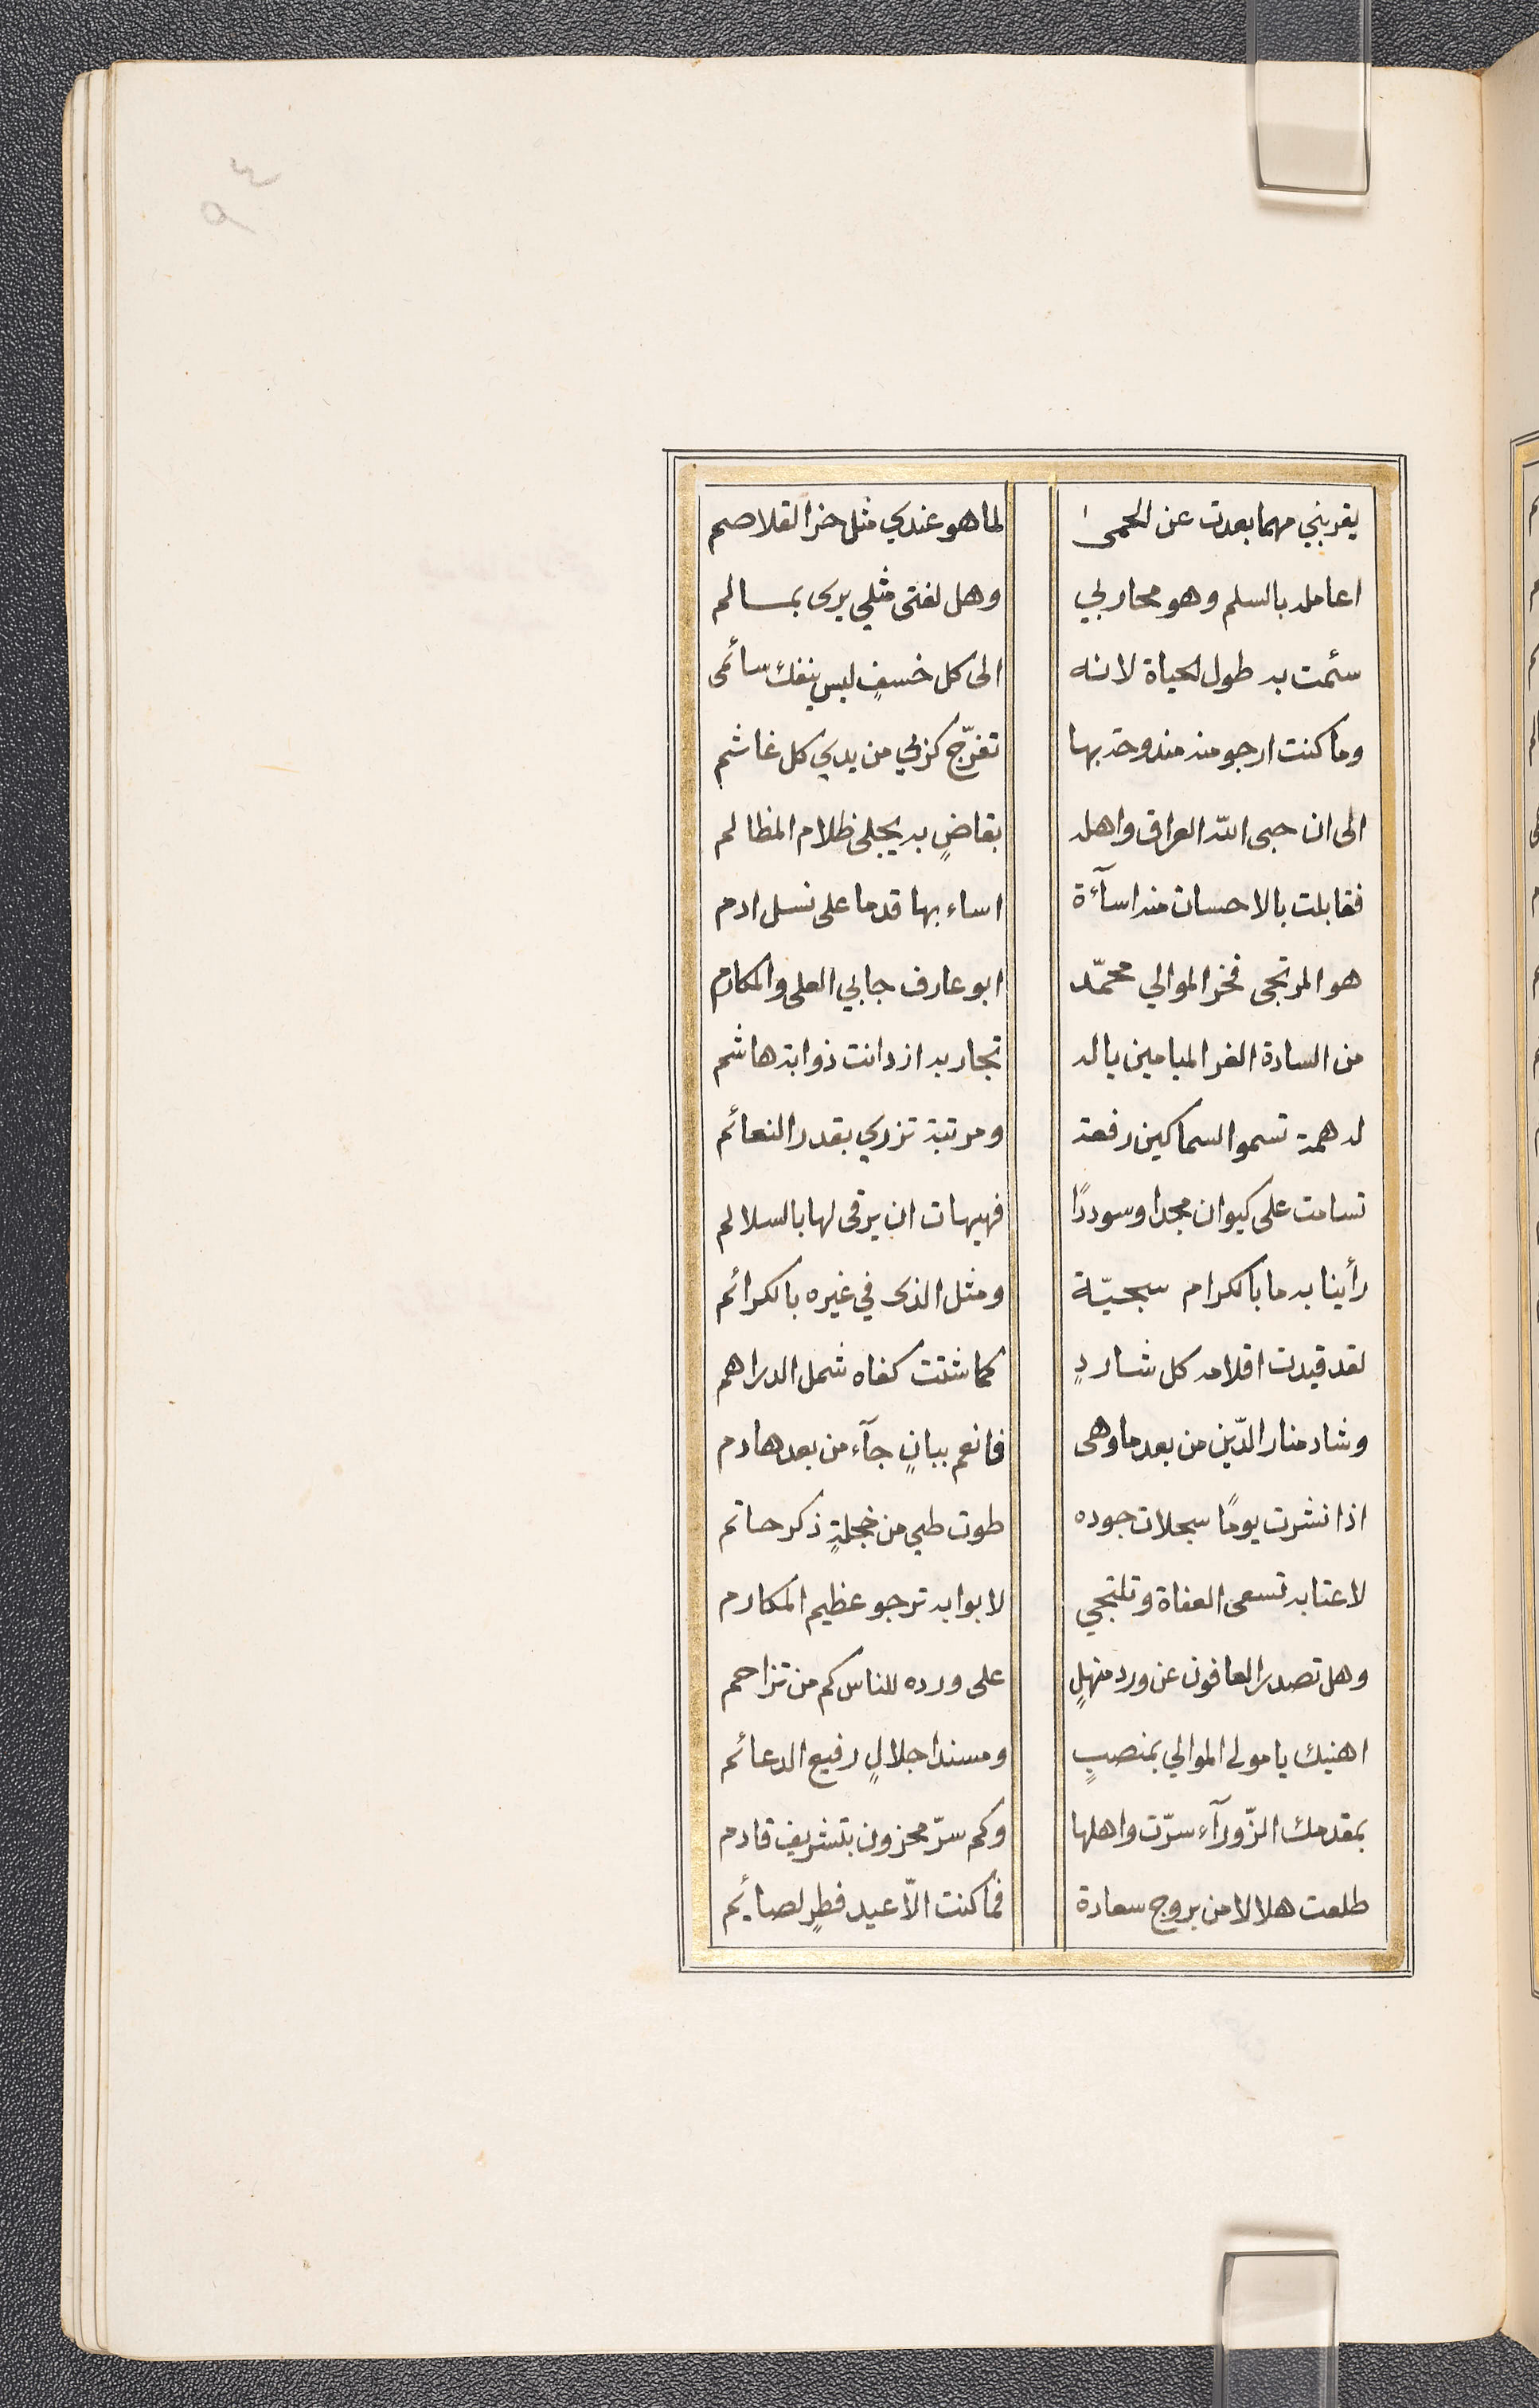 يقربني مهما بعدت عن الحمى لما هو عندي مثل حز القلاصم
اعامله بالسلم وهو محاربي وهل لفتى مثلي يرى بمسالم
سئمت به طول الحياة لانه الى كل خسفٍ ليس ينفك سائمى
وما كنت ارجو منه مندوحة بها تفرّج كربي من يدي كل غاشم
الى ان حبى الله العراق واهله بقاضٍ به يجلى ظلام المظالم
فقابلت بالاحسان منه اسآءة اساء بها قدما على نسل ادم
هو المرتجى فخر الموالي محمّد ابو عارف جابي العلى والمكارم
من السادة الغر الميامين ياله تجار به ازدانت ذوابة هاشم
له همة تسمو السماكين رفعة ومرتبة تزري بقدر النعائم
تسامت على كيوان مجدا وسوددًا فهيهات ان يرقى لها بالسلالم
رأينا به ما بالكرام سجيّة ومثل الذى في غيره بالكرائم
لقد قيدت اقلامه كل شاردٍ كما شتت كفاه شمل الدراهم
وشاد منار الدّين من بعد ما وهى فانعم ببانٍ جآء من بعد هادم
اذا نشرت يومًا سجلات جوده طوت طيي من خجلةٍ ذكر حاتم
لاعتابه تسعى العفاة وتلتجي لابوابه ترجو عظيم المكارم
وهل تصدر العافون عن ورد منهلٍ على ورده للناس كم من تزاحم
اهنيك يا مولى الموالي بمنصبٍ ومسند اجلالٍ رفيع الدعائم
بمقدمك الزّورآء سرّت واهلها وكم سرّ محزون بتشريف قادم
طلعت هلالا من بروج سعادة فما كنت الّا عيد فطرٍ لصائيم